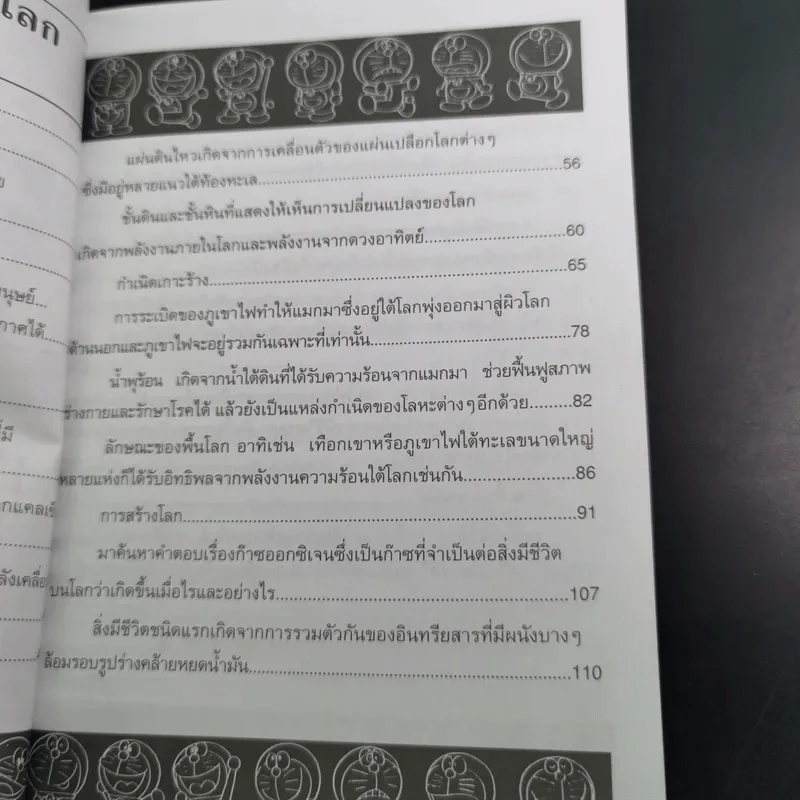 โลก
นุษย์...
ภาคใต้.
ที่มี
กแคลเซี
ลังเคลื่อ
แผ่นดินไหวเกิดจากการเคลื่อนตัวของแผ่นเปลือกโลกต่างๆ
ซึ่งมีอยู่หลายแนวใต้ท้องทะเล...56
ชั้นดินและชั้นหินที่แสดงให้เห็นการเปลี่ยนแปลงของโลก
เกิดจากพลังงานภายในโลกและพลังงานจากดวงอาทิตย์...60
กำเนิดเกาะร้าง...65
การระเบิดของภูเขาไฟทำให้แมกมาซึ่งอยู่ใต้โลกพุ่งออกมาสู่ผิวโลก
ด้านนอกและภูเขาไฟจะอยู่รวมกันเฉพาะที่เท่านั้น...78
น้ำพุร้อน เกิดจากน้ำใต้ดินที่ได้รับความร้อนจากแมกมา ช่วยฟื้นฟูสภาพ
ร่างกายและรักษาโรคได้ แล้วยังเป็นแหล่งกำเนิดของโลหะต่างๆอีกด้วย...82
ลักษณะของพื้นโลก อาทิเช่น เทือกเขาหรือภูเขาไฟใต้ทะเลขนาดใหญ่
หลายแห่งก็ได้รับอิทธิพลจากพลังงานความร้อนใต้โลกเช่นกัน...86
การสร้างโลก...91
มาค้นหาคำตอบเรื่องก๊าซออกซิเจนซึ่งเป็นก๊าซที่จำเป็นต่อสิ่งมีชีวิต
บนโลกว่าเกิดขึ้นเมื่อไรและอย่างไร...107
สิ่งมีชีวิตชนิดแรกเกิดจากการรวมตัวกันของอินทรียสารที่มีผนังบางๆ
ล้อมรอบรูปร่างคล้ายหยดน้ำมัน...110